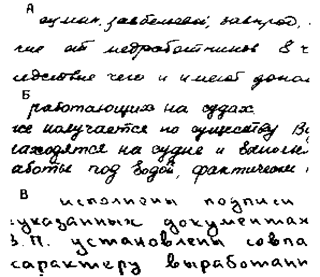 А
чие от медработников в ч
ледствие чего и имеют допол
Б
работающих на судах
же получается по существу Ве
находятся на судне и выполн
аботы под водой, фактически
В
исполнены подписи
указанных документах
З.П. установлены совпа
характеру выработанн